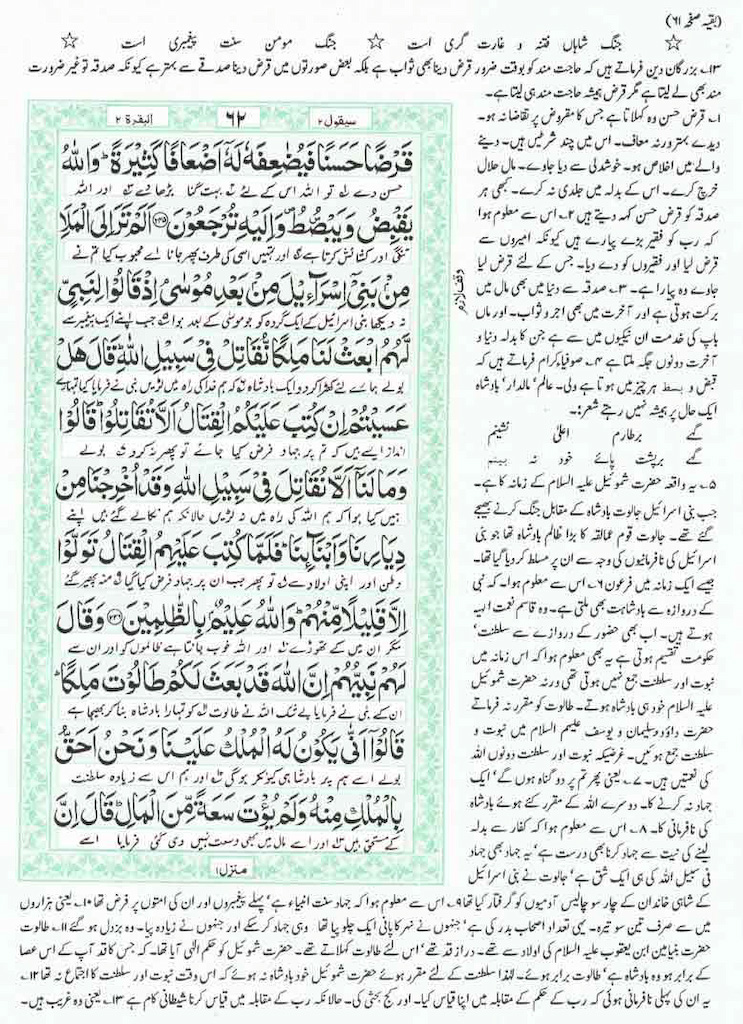 (بقیہ صفحہ ۶۱)
☆ جنگ شاہاں فتنہ و غارت گری است ☆ جنگ مومن سنت پیغمبری است ☆
۱۳۔ بزرگان دین فرماتے ہیں کہ حاجت مند کو بوقت ضرور قرض دینا بھی ثواب ہے بلکہ بعض صورتوں میں قرض دینا صدقے سے بہتر ہے کیونکہ صدقہ تو غیر ضرورت
مند بھی لے لیتا ہے مگر قرض ہمیشہ حاجت مند ہی لیتا ہے۔
۱۔ قرض حسن وہ کہلاتا ہے جس کا مقروض پر تقاضا نہ ہو۔
دیدے بہتر ورنہ معاف۔ اس میں چند شرطیں ہیں۔ دینے
والے میں اخلاص ہو۔ خوشدلی سے دیا جاوے۔ مال حلال
خرچ کرے۔ اس کے بدلہ میں جلدی نہ کرے۔ کبھی ہر
صدقہ کو قرض حسن کہہ دیتے ہیں ۲۔ اس سے معلوم ہوا
کہ رب کو فقیر بڑے پیارے ہیں کیونکہ امیروں سے
قرض لیا اور فقیروں کو دے دیا۔ جس کے لئے قرض لیا
جاوے وہ پیارا ہے۔ ۳۔ صدقہ سے دنیا میں بھی مال میں
برکت ہوتی ہے اور آخرت میں بھی اجر و ثواب۔ اور ماں
باپ کی خدمت ان نیکیوں میں سے ہے جن کا بدلہ دنیا و
آخرت دونوں جگہ ملتا ہے ۴۔ صوفیاء کرام فرماتے ہیں کہ
قبض و بسط ہر چیز میں ہوتا ہے ولی، عالم، مالدار، بادشاہ
ایک حال پر ہمیشہ نہیں رہتے شعر:۔
گہے برطارم اعلیٰ نشینم
گہے برپشت پائے خود نہ بینم
۵۔ یہ واقعہ حضرت شموئیل علیہ السلام کے زمانہ کا ہے۔
جب بنی اسرائیل جالوت بادشاہ کے مقابل جنگ کرنے بھیجے
گئے تھے۔ جالوت قوم عمالقہ کا بڑا ظالم بادشاہ تھا جو بنی
اسرائیل کی نافرمانیوں کی وجہ سے ان پر مسلط کر دیا گیا تھا۔
جیسے ایک زمانہ میں فرعون ۶۔ اس سے معلوم ہوا کہ نبی
کے دروازہ سے بادشاہت بھی ملتی ہے۔ وہ قاسم نعمت الہیہ
ہوتے ہیں۔ اب بھی حضور کے دروازے سے سلطنت،
حکومت تقسیم ہوتی ہے یہ بھی معلوم ہوا کہ اس زمانہ میں
نبوت اور سلطنت جمع نہیں ہوتی تھی ورنہ حضرت شموئیل
علیہ السلام خود ہی بادشاہ ہوتے۔ طالوت کو مقرر نہ فرماتے
حضرت داؤد و سلیمان و یوسف علیہم السلام میں نبوت و
سلطنت جمع ہوئیں۔ غرضیکہ نبوت اور سلطنت دونوں اللہ
کی نعمتیں ہیں۔ ۷۔ یعنی پھر تم پر دو گناہ ہوں گے، ایک
جہاد نہ کرنے کا۔ دوسرے اللہ کے مقرر کئے ہوئے بادشاہ
کی نافرمانی کا۔ ۸۔ اس سے معلوم ہوا کہ کفار سے بدلہ
لینے کی نیت سے جہاد کرنا بھی درست ہے، یہ جہاد بھی جہاد
فی سبیل اللہ کی ہی ایک شق ہے، جالوت نے بنی اسرائیل
سیقول ۲ ۶۲ البقرۃ ۲
قَرْضًا حَسَنًا فَيُضٰعِفَهٗ لَهٗٓ اَضْعَافًا كَثِيْرَةً ؕ وَاللّٰهُ
حسن دے تو اللہ اس کے لئے بہت گنا بڑھا دے اور اللہ
يَقْبِضُ وَيَبْصُۜطُ ۪ وَاِلَيْهِ تُرْجَعُوْنَ ﴿۲۴۵﴾ اَلَمْ تَرَ اِلَى الْمَلَاِ
تنگی اور کشائش کرتا ہے اور تمہیں اسی کی طرف پھر جانا اے محبوب کیا تم نے
مِنْۢ بَنِيْٓ اِسْرَآءِيْلَ مِنْۢ بَعْدِ مُوْسٰى ۘ اِذْ قَالُوْا لِنَبِيٍّ
نہ دیکھا بنی اسرائیل کے ایک گروہ کو جو موسیٰ کے بعد ہوا جب اپنے ایک پیغمبر سے
وقف لازم
لَّهُمُ ابْعَثْ لَنَا مَلِكًا نُّقَاتِلْ فِيْ سَبِيْلِ اللّٰهِ ؕ قَالَ هَلْ
بولے ہمارے لئے کھڑا کر دو ایک بادشاہ کہ ہم خدا کی راہ میں لڑیں نبی نے فرمایا کیا تمہارے
عَسَيْتُمْ اِنْ كُتِبَ عَلَيْكُمُ الْقِتَالُ اَلَّا تُقَاتِلُوْا ؕ قَالُوْا
انداز ایسے ہیں کہ تم پر جہاد فرض کیا جائے تو پھر نہ کرو بولے
وَمَا لَنَآ اَلَّا نُقَاتِلَ فِيْ سَبِيْلِ اللّٰهِ وَقَدْ اُخْرِجْنَا مِنْ
ہمیں کیا ہوا کہ ہم اللہ کی راہ میں نہ لڑیں حالانکہ ہم نکالے گئے ہیں اپنے
دِيَارِنَا وَاَبْنَآئِنَا ؕ فَلَمَّا كُتِبَ عَلَيْهِمُ الْقِتَالُ تَوَلَّوْا
وطن اور اپنی اولاد سے تو پھر جب ان پر جہاد فرض کیا گیا منہ پھیر گئے
اِلَّا قَلِيْلًا مِّنْهُمْ ؕ وَاللّٰهُ عَلِيْمٌۢ بِالظّٰلِمِيْنَ ﴿۲۴۶﴾ وَقَالَ
مگر ان میں کے تھوڑے اور اللہ خوب جانتا ہے ظالموں کو اور ان سے
لَهُمْ نَبِيُّهُمْ اِنَّ اللّٰهَ قَدْ بَعَثَ لَكُمْ طَالُوْتَ مَلِكًا ؕ
ان کے نبی نے فرمایا بے شک اللہ نے طالوت کو تمہارا بادشاہ بنا کر بھیجا ہے
قَالُوْٓا اَنّٰى يَكُوْنُ لَهُ الْمُلْكُ عَلَيْنَا وَنَحْنُ اَحَقُّ
بولے اسے ہم پر بادشاہی کیونکر ہوگی اور ہم اس سے زیادہ سلطنت
بِالْمُلْكِ مِنْهُ وَلَمْ يُؤْتَ سَعَةً مِّنَ الْمَالِ ؕ قَالَ اِنَّ
کے مستحق ہیں اور اسے مال میں بھی وسعت نہیں دی گئی فرمایا اسے
منزل ۱
کے شاہی خاندان کے چار سو چالیس آدمیوں کو گرفتار کیا تھا ۹۔ اس سے معلوم ہوا کہ جہاد سنت انبیاء ہے، پہلے پیغمبروں اور ان کی امتوں پر فرض تھا ۱۰۔ یعنی ہزاروں
میں سے صرف تین سو تیرہ۔ یہی تعداد اصحاب بدر کی ہے، جنہوں نے نہر کا پانی ایک چلو پیا تھا وہی جہاد کر سکے اور جنہوں نے زیادہ پیا۔ وہ بزدل ہو گئے ۱۱۔ طالوت
حضرت بنیامین ابن یعقوب علیہ السلام کی اولاد سے تھے۔ دراز قد تھے، اس لئے طالوت کہلاتے تھے۔ حضرت شموئیل کو حکم الٰہی آیا تھا۔ کہ جس کا قد آپ کے اس عصا
کے برابر ہو وہ بادشاہ ہے، طالوت برابر ہوئے۔ لہٰذا سلطنت کے لئے مقرر ہوئے حضرت شموئیل خود بادشاہ نہ ہوئے کہ اس وقت نبوت اور سلطنت کا اجتماع نہ تھا ۱۲۔
یہ ان کی پہلی نافرمانی ہوئی کہ رب کے حکم کے مقابلہ میں اپنا قیاس کیا۔ اور کج بحثی کی۔ حالانکہ رب کے مقابلہ میں قیاس کرنا شیطانی کام ہے ۱۳۔ یعنی وہ غریب ہیں۔